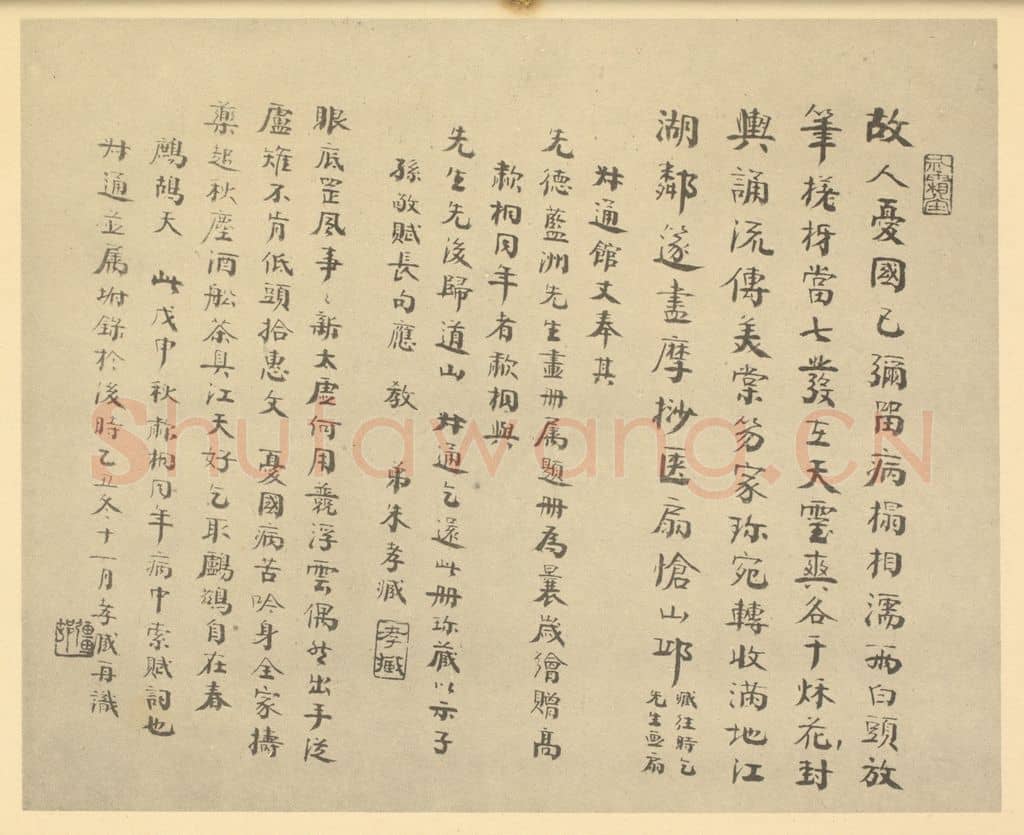 故人憂國已彌留病榻相濡兩白頭放
筆槎枒當七發在天靈爽各千秌花封
輿誦流傳美棠笏家珍宛轉收滿地江
湖鄰篴盡摩挱医扇愴山邱
臧往時乞
先生画扇
尗通館丈奉其
先德藍洲先生畫册属題册為曩歲繪贈高
歗桐同年者歗桐與
先生先後歸道山 尗通乞還此册珍藏以示子
孫敬賦長句應 教 弟朱孝臧
孝臧
眼底罡風事〻新太虛何用羃浮雲偶然出手从
盧雉不肯低頭拾惠文 憂國病苦吟身全家擣
藥起秋塵酒船茶具江天好乞取鸕鶿自在春
鷓鴣天 此戊申秋歗桐同年病中索賦詞也
尗通並属坿錄於後時乙丑冬十一月孝臧再識
彊邨
Shufawang.CN